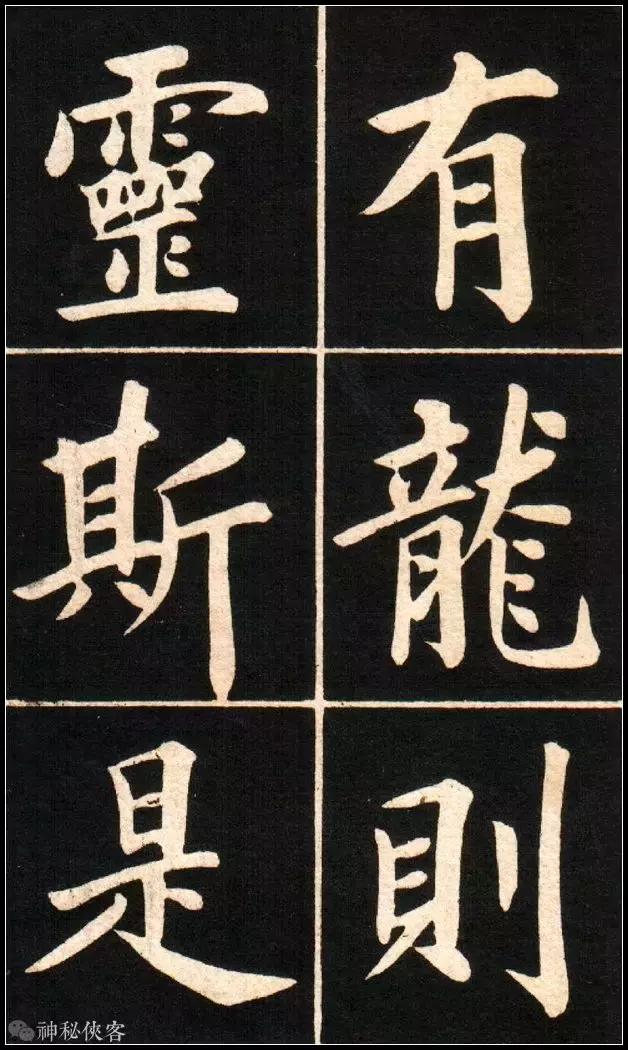 有龍則
靈斯是
神秘俠客